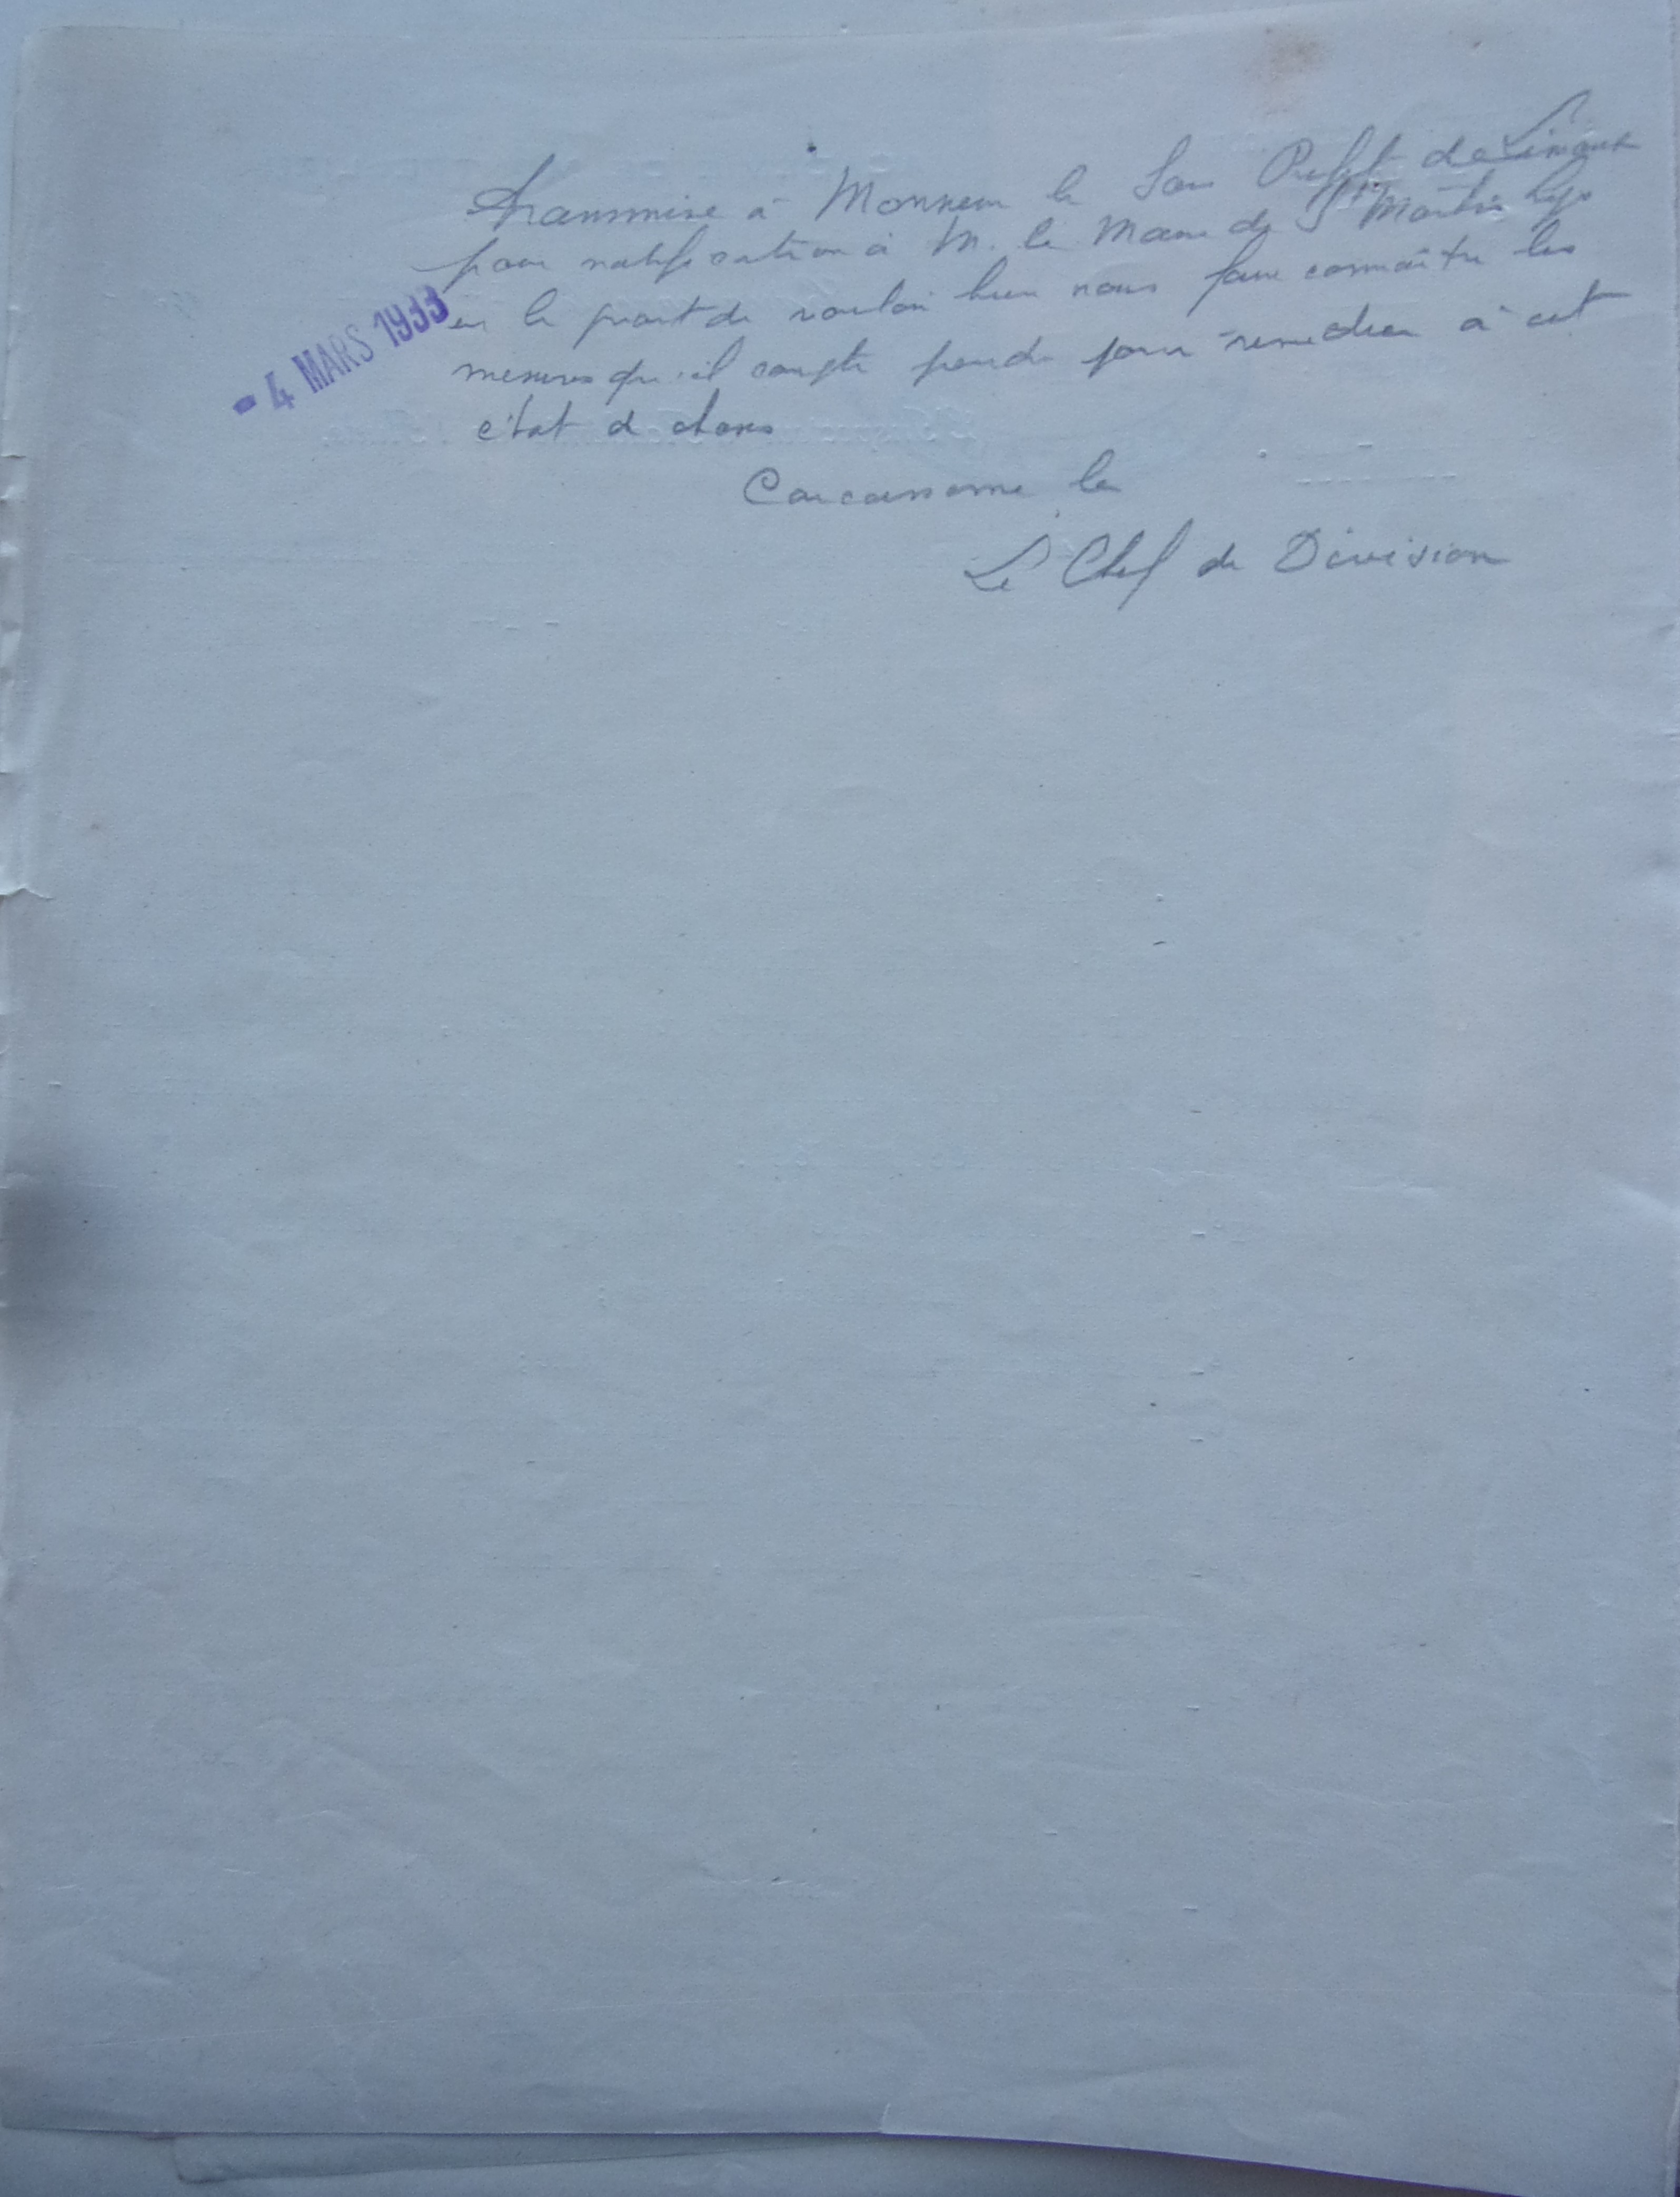 Transmise à Monsieur le Sous Préfet de Limoux
pour notification à M. le Maire de St Martin Lys
en le priant de vouloir bien nous faire connaître les
- 4 MARS 1933
mesures qu'il compte prendre pour remedier à cet
état de choses
Carcassonne le
Le Chef de Division